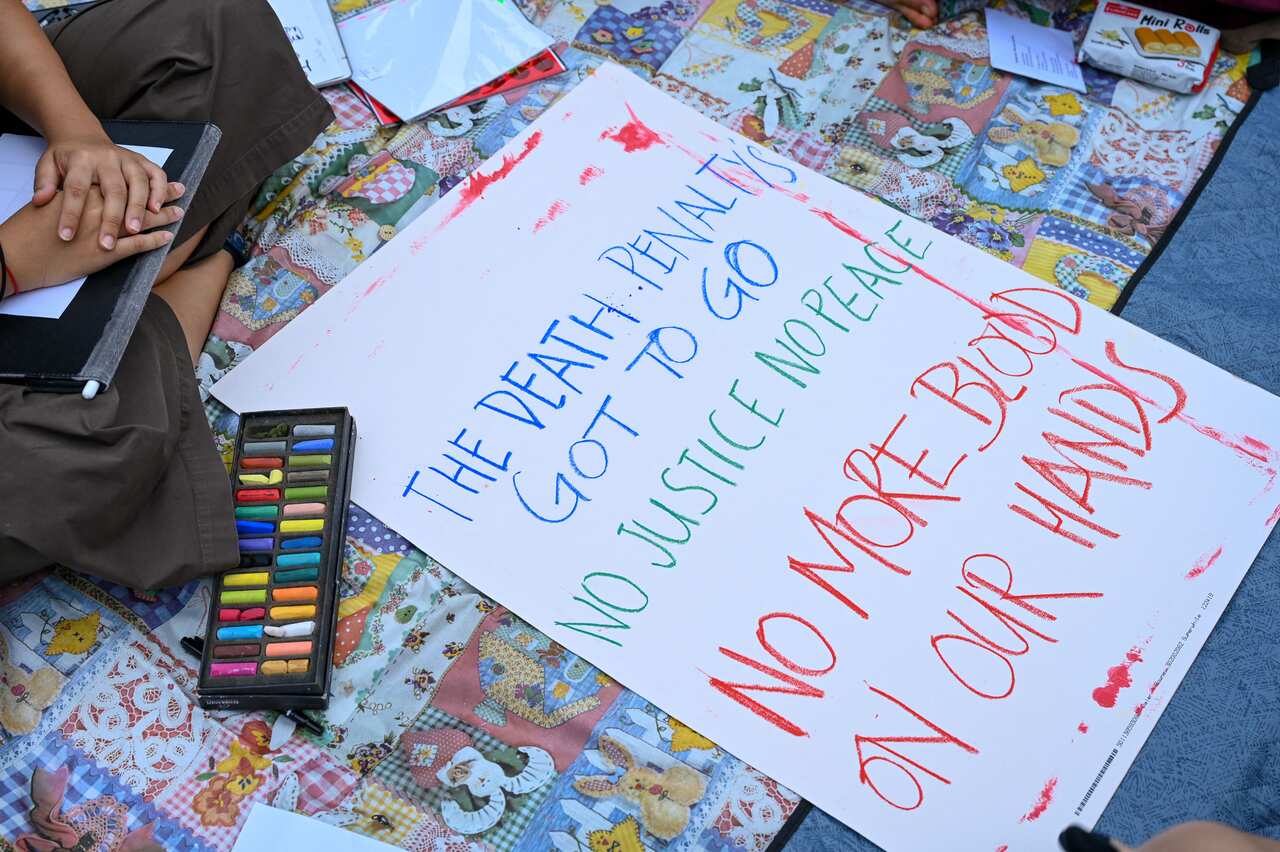 THE DEATH PENALTY'S
GOT TO GO
NO JUSTICE NO PEACE
NO MORE BLOOD
ON OUR HANDS
Mini Rolls